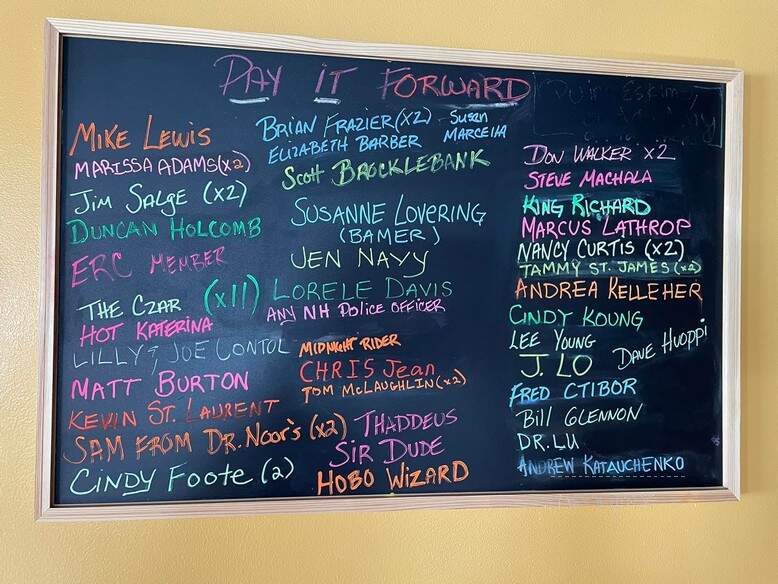 PAY IT FORWARD
MIKE LEWIS
MARISSA ADAMS (x2)
JIM SALGE (x2)
DUNCAN HOLCOMB
ERC MEMBER
THE CZAR (x11)
HOT KATERINA
LILLY & JOE CONTOL
MATT BURTON
KEVIN ST. LAURENT
SAM FROM DR. NOOR'S (x2)
CINDY FOOTE (2)
BRIAN FRAZIER (x2)
ELIZABETH BARBER
Susan
MARCELLA
Scott BROCKLEBANK
SUSANNE LOVERING
(BAMER)
JEN NAVY
LORELE DAVIS
ANY NH POLICE OFFICER
MIDNIGHT RIDER
CHRIS Jean
TOM McLAUGHLIN (x2)
THADDEUS
SIR DUDE
HOBO WIZARD
DON WALKER x2
STEVE MACHALA
KING RICHARD
MARCUS LATHROP
NANCY CURTIS (x2)
TAMMY ST. JAMES (x2)
ANDREA KELLEHER
CINDY KOUNG
LEE YOUNG
J. LO
DAVE HUOPPI
FRED CTIBOR
Bill GLENNON
DR. LU
ANDREW KATAUCHENKO